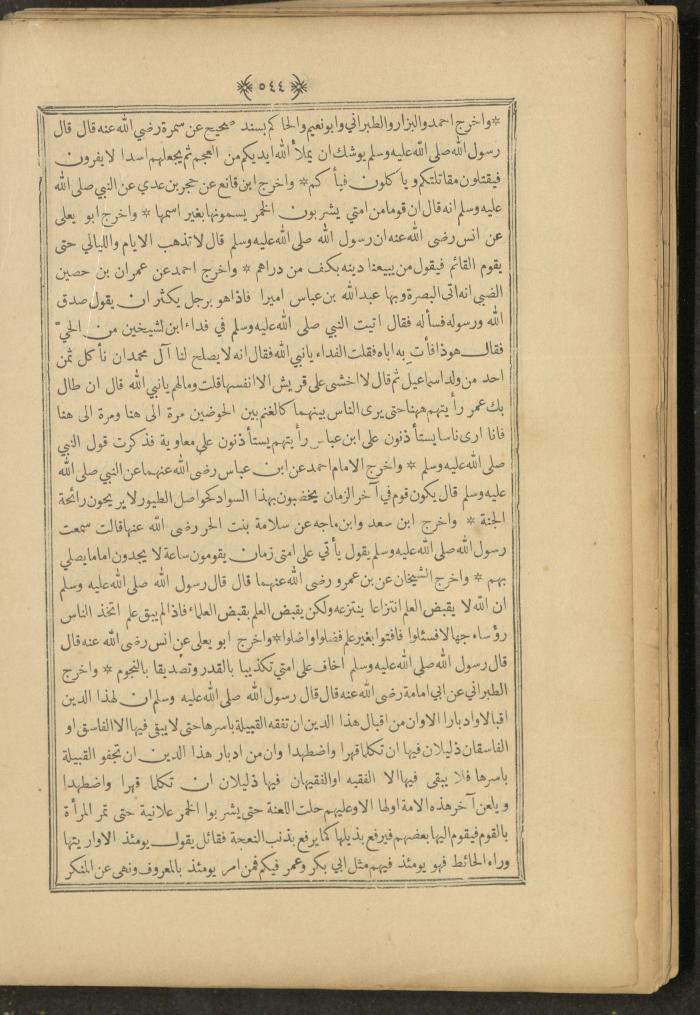 ٥٤٤
* واخرج احمد والبزار والطبراني وابو نعيم والحاكم بسند صحيح عن سمرة رضي الله عنه قال قال
رسول الله صلى الله عليه وسلم يوشك ان يملأ الله ايديكم من العجم ثم يجعلهم اسدا لا يفرون
فيقتلون مقاتلتكم ويأكلون فيأكم * واخرج ابن قانع عن حجر بن عدي عن النبي صلى الله
عليه وسلم انه قال ان قوما من امتي يشربون الخمر يسمونها بغير اسمها * واخرج ابو يعلى
عن انس رضى الله عنه ان رسول الله صلى الله عليه وسلم قال لا تذهب الايام والليالي حتى
يقوم القائم فيقول من يبيعنا دينه بكف من دراهم * واخرج احمد عن عمران بن حصين
الضبي انه اتى البصرة وبها عبد الله بن عباس اميرا فاذا هو برجل يكثر ان يقول صدق
الله ورسوله فسأله فقال اتيت النبي صلى الله عليه وسلم في فداء ابن لشيخين من الحيّ
فقال هوذا فأت به اباه فقلت الفداء يا نبي الله فقال انه لا يصلح لنا آل محمد ان نأكل ثمن
احد من ولد اسماعيل ثم قال لا اخشى على قريش الا انفسها قلت وما لهم يا نبي الله قال ان طال
بك عمر رأيتهم ههنا حتى يرى الناس بينهما كالغنم بين الحوضين مرة الى هنا ومرة الى هنا
فانا ارى ناسا يستأذنون على ابن عباس رأيتهم يستأذنون على معاوية فذكرت قول النبي
صلى الله عليه وسلم * واخرج الامام احمد عن ابن عباس رضى الله عنهما عن النبي صلى الله
عليه وسلم قال يكون قوم في آخر الزمان يخضبون بهذا السواد كحواصل الطيور لا يريحون رائحة
الجنة * واخرج ابن سعد وابن ماجه عن سلامة بنت الحر رضى الله عنها قالت سمعت
رسول الله صلى الله عليه وسلم يقول يأتي على امتى زمان يقومون ساعة لا يجدون اماما يصلي
بهم * واخرج الشيخان عن بن عمرو رضى الله عنهما قال قال رسول الله صلى الله عليه وسلم
ان الله لا يقبض العلم انتزاعا ينتزعه ولكن يقبض العلم بقبض العلماء فاذا لم يبق علم اتخذ الناس
رؤساء جهالا فسئلوا فافتوا بغير علم فضلوا واضلوا * واخرج ابو يعلى عن انس رضى الله عنه قال
قال رسول الله صلى الله عليه وسلم اخاف على امتي تكذيبا بالقدر وتصديقا بالنجوم * واخرج
الطبراني عن ابي امامة رضى الله عنه قال قال رسول الله صلى الله عليه وسلم ان لهذا الدين
اقبالا وادبارا الا وان من اقبال هذا الدين ان تفقه القبيلة باسرها حتى لا يبقى فيها الا الفاسق او
الفاسقان ذليلان فيها ان تكلما قهرا واضطهدا وان من ادبار هذا الدين ان تجفو القبيلة
باسرها فلا يبقى فيها الا الفقيه او الفقيهان فيها ذليلان ان تكلما قهرا واضطهدا
ويلعن آخر هذه الامة اولها الا وعليهم حلت اللعنة حتى يشربوا الخمر علانية حتى تمر المرأة
بالقوم فيقوم اليها بعضهم فيرفع بذيلها كما يرفع بذنب النعجة فقائل يقول يومئذ الا واريتها
وراء الحائط فهو يومئذ فيهم مثل ابي بكر وعمر فيكم فمن امر يومئذ بالمعروف ونهى عن المنكر